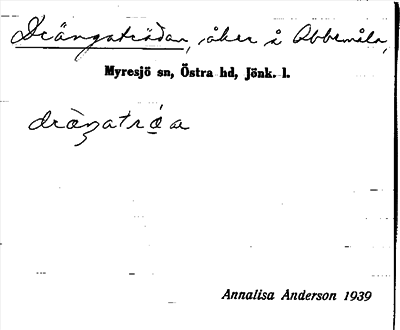 Drängaträdan, åker å Abbemåla,
Myresjö sn, Östra hd, Jönk. l.
dràŋatró̱a
Annalisa Anderson 1939